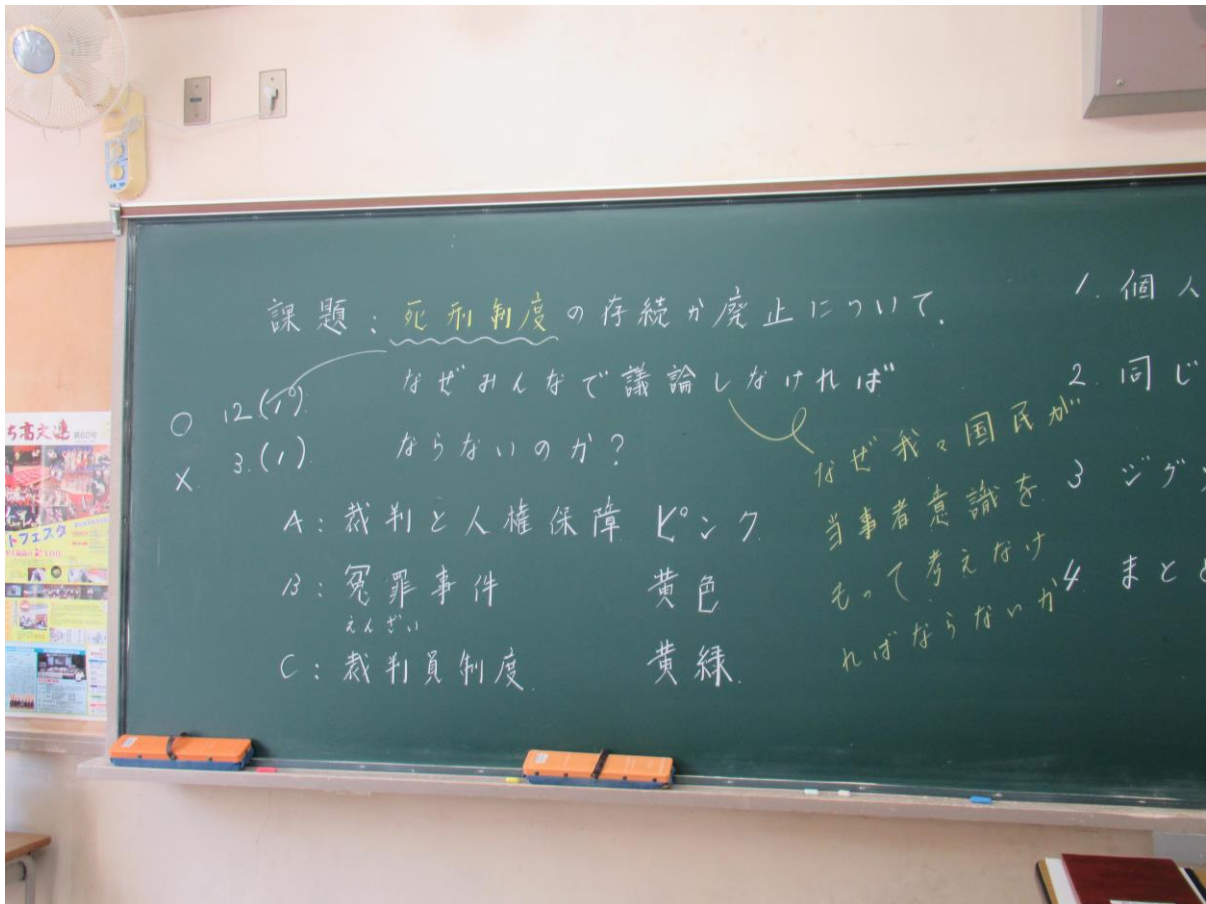 課題：死刑制度の存続か廃止について.
なぜみんなで議論しなければ
ならないのか？
○ 12(19).
× 3.(1).
A：裁判と人権保障 ピンク.
B：冤罪事件 黄色
えんざい
C：裁判員制度. 黄緑.
なぜ我々国民が
当事者意識を
もって考えなけ
ればならないか
1. 個人
2. 同じ
3 ジグソ
4 まとめ
ち高文連
トフェスタ